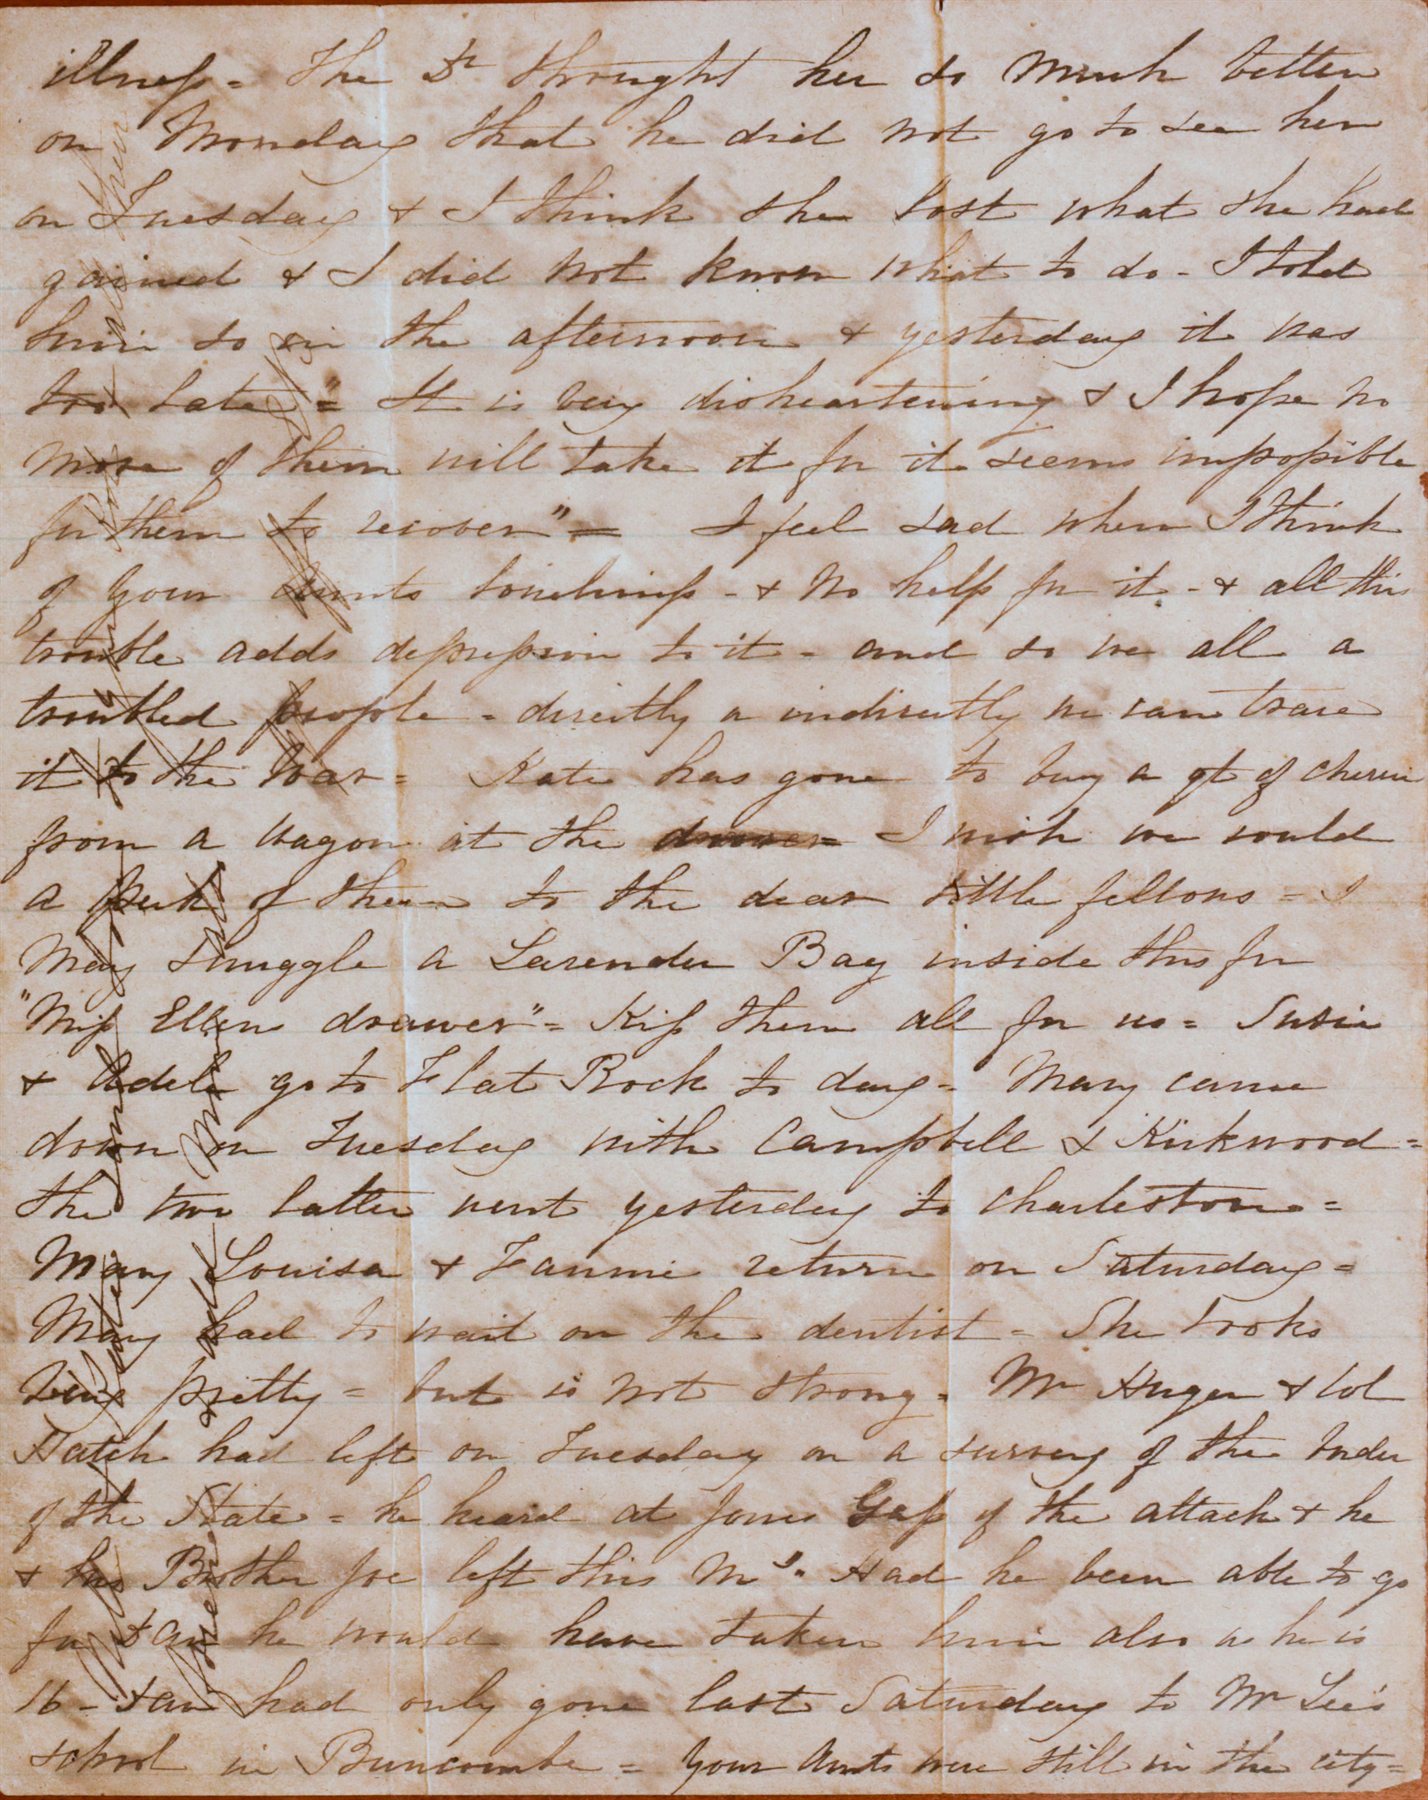 illness = The Dr thought her so much better
on Monday that he did not go to see her
on Tuesday & I think she lost what she had
gained & I did not know what to do - I told
him so in the afternoon & yesterday it was
too late" = It is very disheartening & I hope no
more of them will take it for it seems impossible
for them to recover" = I feel sad when I think
of your Aunts loneliness - & no help for it - & all this
trouble adds depression to it - and so we all a
troubled people - directly or indirectly we can trace
it to the War = Kate has gone to buy a qt of cherries
from a wagon at the I wish we could
a peck of them to the dear little fellows = I
may smuggle a Lavender Bag inside this for
"Miss Ellens drawer" = Kiss them all for us = Susie
& Adele go to Flat Rock to day = Mary came
down on Tuesday with Campbell & Kirkwood =
the two latter went yesterday to Charleston =
Mary Louisa & Fannie return on Saturday =
Mary had to wait on the dentist = She looks
very pretty = but is not strong = Mr Huger & Col
Hatch had left on Tuesday on a survey of the border
of the State = he heard at Jones Gap of the attack & he
& his Brother Joe left this Mg. Had he been able to go
for he would have taken him also as he is
16 - had only gone last Saturday to Mr Lee's
school in Buncombe = Your Aunts were still in the city =